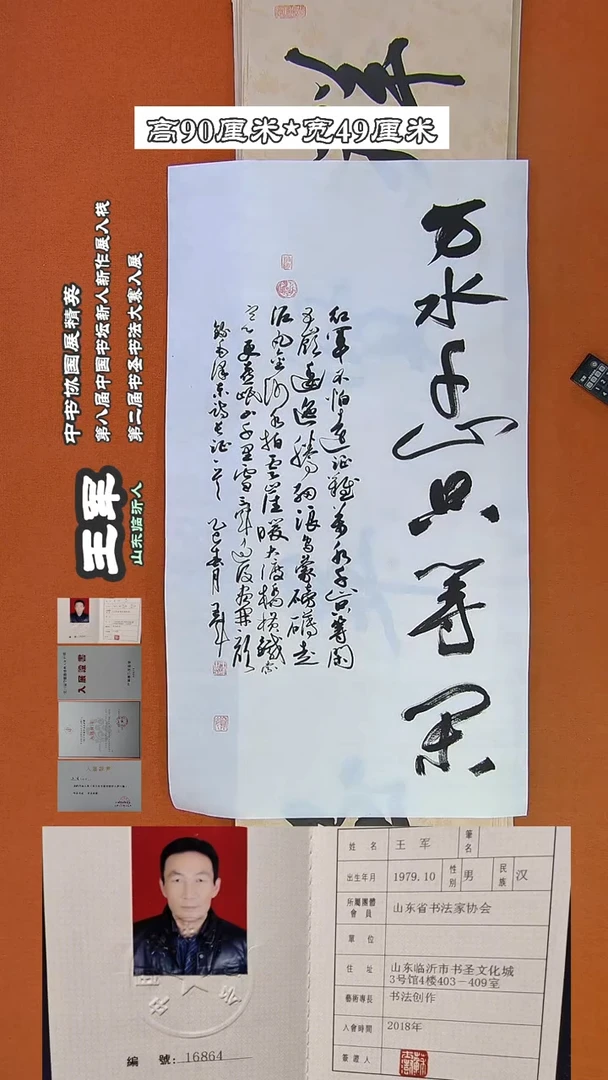 高90厘米*宽49厘米
万水千山只等闲
红军不怕远征难万水千山只等闲
五岭逶迤腾细浪乌蒙磅礴走
泥丸金沙水拍云崖暖大渡桥横铁索
寒更喜岷山千里雪三军过后尽开颜
录毛泽东诗长征一首 乙巳春月 王军
第二届书圣书法大赛入展
第八届中国书坛新人新作展入展
中书协国展精英
王军
山东临沂人
入展证书
姓名 王军 筆名
出生年月 1979.10 性别 男 民族 汉
所屬團體會員 山东省书法家协会
單位
住址 山东临沂市书圣文化城3号馆4楼403-409室
藝術專長 书法创作
入會時間 2018年
簽證人
編號: 16864